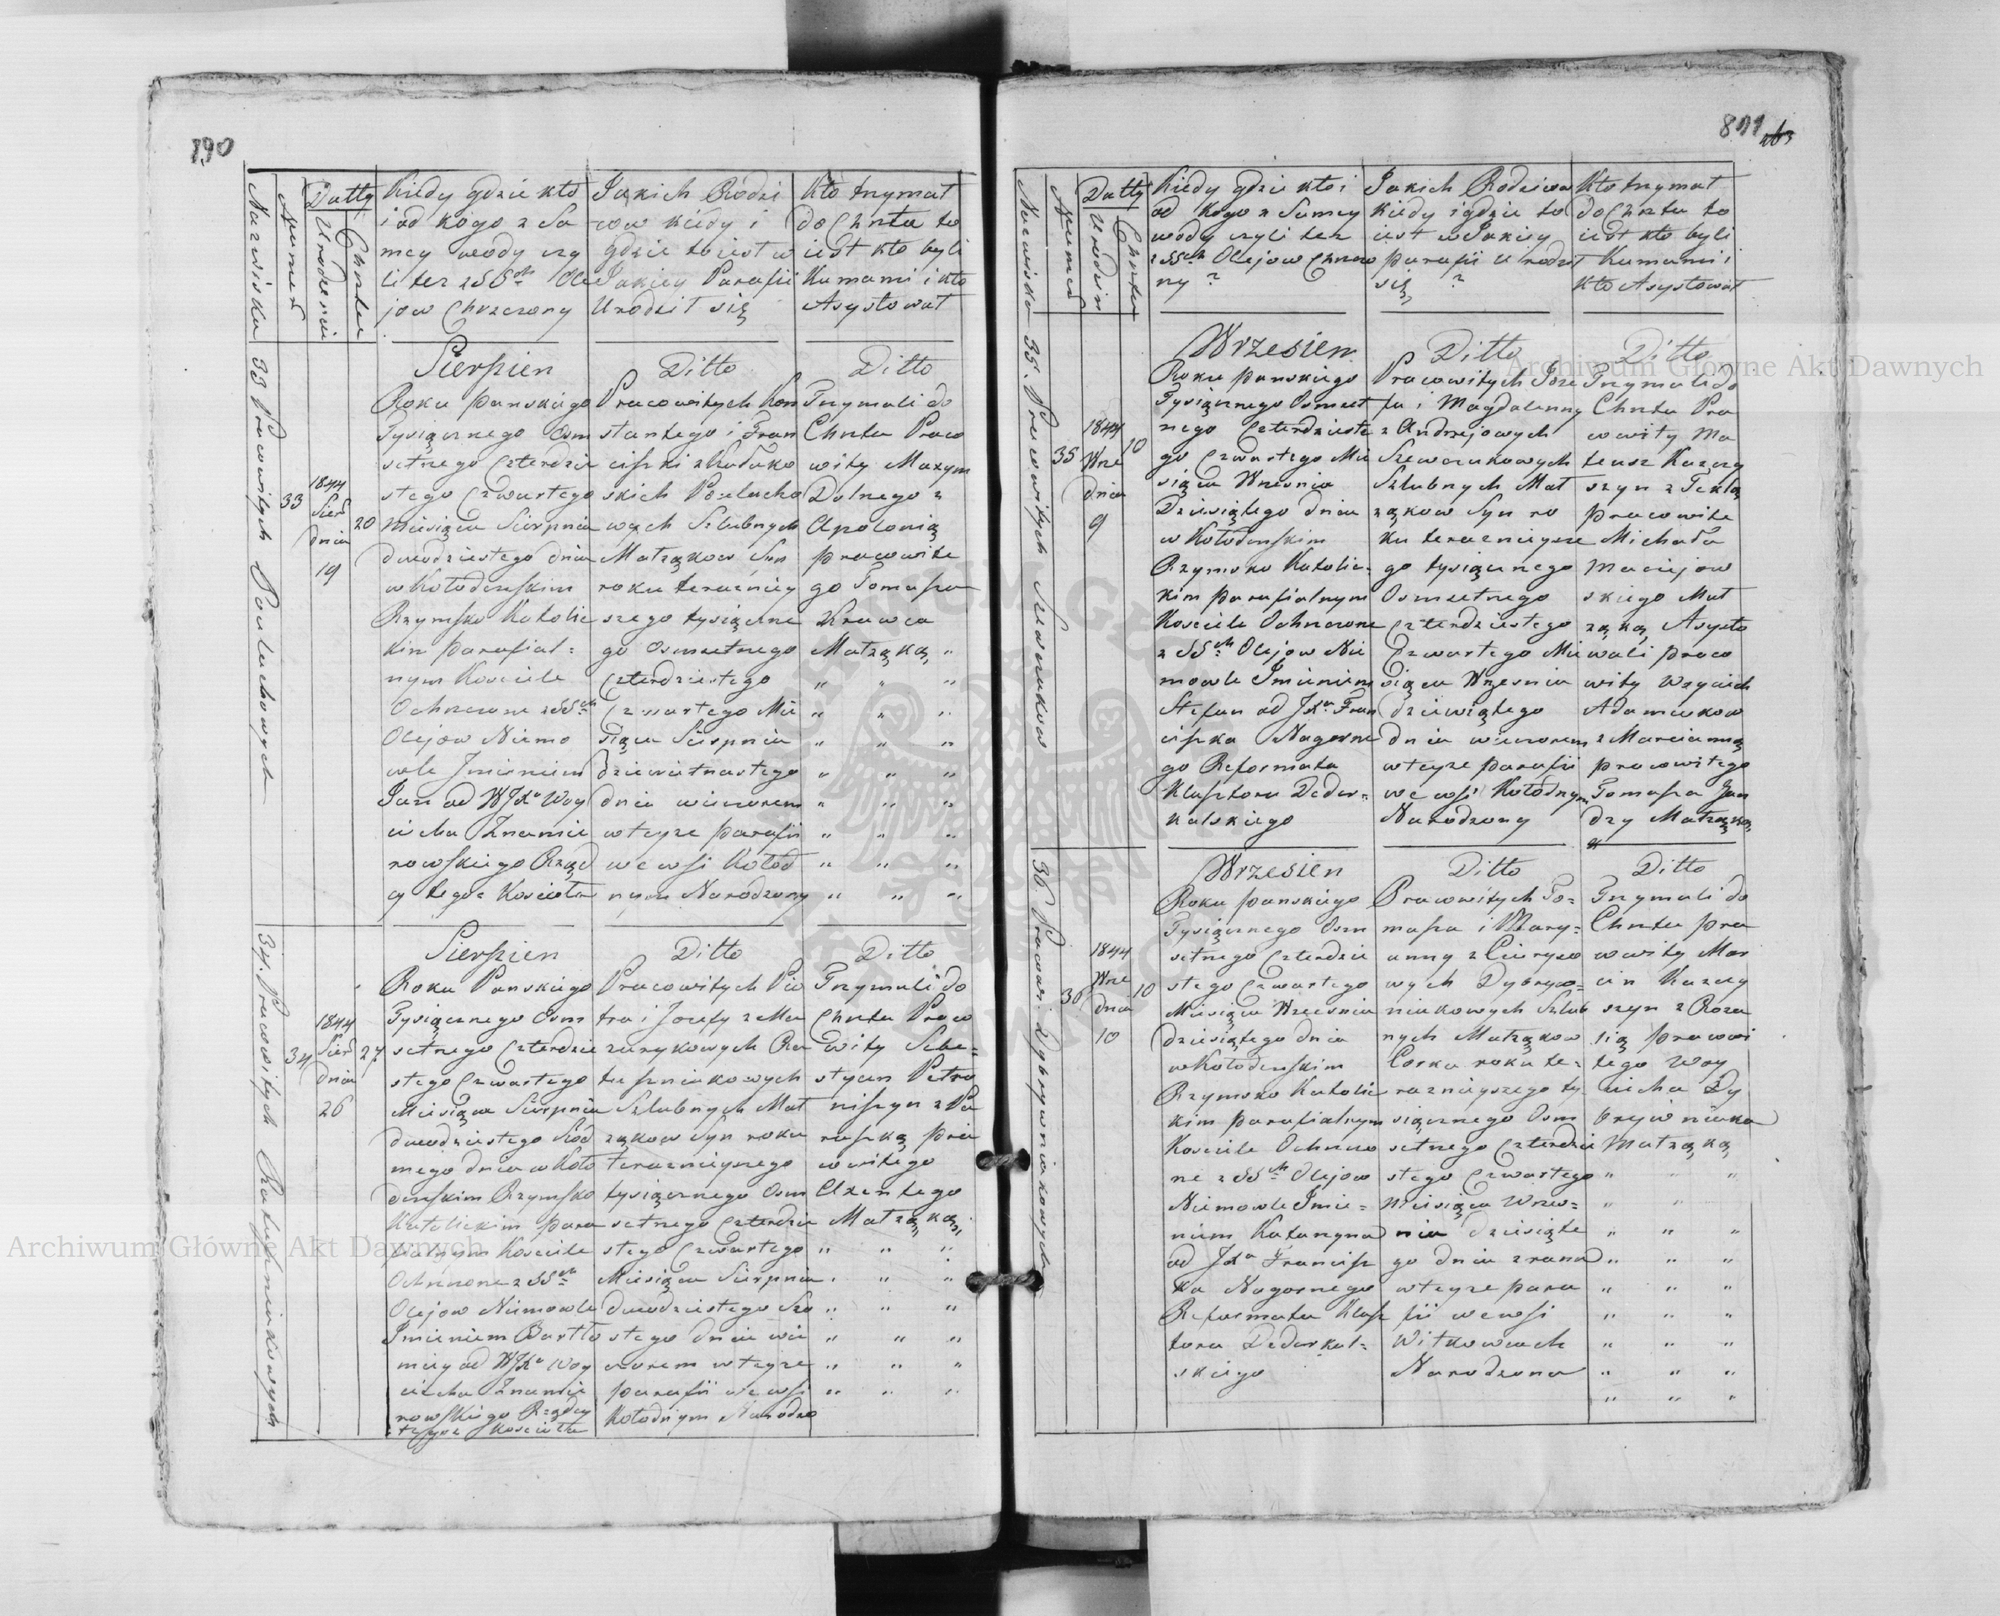 890
Nazwiska
Numer
Datty
Urodzenia
Chrztu
Kiedy gdzie kto
i od kogo z Sa
mey wody czy
li tez z SSch Ole
jow Chrzczony
Jakich Rodzi
cow kiedy i
gdzie to iest w
Jakiey Parafii
Urodził się
Kto trzymał
do Chrztu to
iest kto byli
Kumami i kto
Asystował
33 Pracowitych Paluchowych
33
1844
Sier
dnia
19
20
Sierpien
Roku Panskiego
Tysiącznego Osm
setnego Czterdzie
stego Czwartego
Miesiąca Sierpnia
dwudziestego dnia
w Kołodenskim
Rzymsko Katolic
kim Parafial=
nym Kosciele
Ochrzczone z SSch
Olejow Niemo
wle Imieniem
Jan od WJXa Woy
ciecha Znamie
rowskiego Rząd
cy tegoz Koscioła
Ditto
Pracowitych Kon
stantego i Fran
ciszki z
skich Palucho
wych Szlubnych
Małząkow Syn
roku terazniey
szego tysiączne
go Osmsetnego
Czterdziestego
Czwartego Mie
siąca Sierpnia
dziewietnastego
dnia wieczorem
w teyze parafii
we wsi Kołod
nym Narodzony
Ditto
Trzymali do
Chrztu Praco
wity Maxym
Dolnego z
Apolonią
pracowite
go Tomasza
Krawca
Małząką,
34. Pracowitych
34
1844
Sier
dnia
26
27
Sierpien
Roku Panskiego
Tysiącznego Osm
setnego Czterdzie
stego Czwartego
Miesiąca Sierpnia
dwudziestego Siod
mego dnia w Koło
denskim Rzymsko
Katolickim para
fialnym Kosciele
Ochrzczone z SSch
Olejow Niemowle
Imieniem Bartło
miey od WJXa Woy
ciecha Znamie
rowskiego Rządcy
teyze Kosciola
Ditto
Pracowitych Pio
tra i Jozefy z Ma
zurykowych Ra
tuszniakowych
Szlubnych Mał
ząkow Syn roku
teraznieyszego
tysiącznego Osm
setnego Czterdzie
stego Czwartego
Miesiąca Sierpnia
dwudziestego Szo
stego dnia wie
czorem w teyze
parafii we wsi
Kołodnym Narodzo
Ditto
Trzymali do
Chrztu Praco
wity Seba=
styan Petro
niszyn z Pa
raszką pra
cowitego
Axentego
Małząką,
891
Nazwiska
Numer
Datty
Urodzin
Chrztu
Kiedy gdzie kto i
od kogo z Samey
wody czyli tez
z SSch Olejow Chrzczo
ny ?
Jakich Rodzicow
Kiedy i gdzie to
iest w Jakiey
parafii Urodził
się ?
Kto trzymał
do Chrztu to
iest kto byli
Kumami i
kto Asystował
35. Pracowitych Szewczukow
35
1844
Wrze
dnia
9
10
Wrzesien
Roku Panskiego
Tysiącznego Osmset
nego Czterdzieste
go Czwartego Mie
siąca Wrzesnia
Dziesiątego dnia
w Kołodenskim
Rzymsko Katolic=
kim parafialnym
Kosciele Ochrzczone
z SSch Olejow Nie
mowle Imieniem
Stefan od JXa Fran
ciszka Nagorne
go Reformata
Klasztoru Deder=
kalskiego
Ditto
Pracowitych Joze
fa i Magdalenny
z Andrzejowych
Szewczukowych
Szlubnych Mał
ząkow Syn ro
ku teraznieysze
go tysiącznego
Osmsetnego
Czterdziestego
Czwartego Mie
siąca Wrzesnia
dziewiątego
dnia wieczorem
w teyze parafii
we wsi Kołodnym
Narodzony
Ditto
Trzymali do
Chrztu Pra
cowity Ma
teusz Kaza
szyn z Teklą
pracowite
Michała
Maciejow
skiego Mał
ząką, Asysto
wali praco
wity Woyciech
Adamiukow
z Marcianną
pracowitego
Tomasza Jan
dzy Małząką,
36
1844
Wrze
dnia
10
10
Wrzesien
Roku Panskiego
Tysiącznego Osm
setnego Czterdzie
stego Czwartego
Miesiąca Wrzesnia
dziesiątego dnia
w Kołodenskim
Rzymsko Katolic
kim Parafialnym
Kosciele Ochrzczo
ne z SSch Olejow
Niemowle Imie=
niem Katarzyna
od JXa Francisz
ka Nagornego
Reformata Klasz
toru Dederkal=
skiego
Ditto
Pracowitych To=
masza i Mary=
anny z
wych Dybryw=
niukowych Szlub
nych Małząkow
Corka roku te=
raznieyszego ty
siącznego Osm
setnego Czterdzie
stego Czwartego
Miesiąca Wrzes=
nia dziesiąte
go dnia z rana
w teyze para
fii we wsi
Witkowcach
Narodzona
Ditto
Trzymali do
Chrztu pra
cowity Mar
cin
szyn z Roza
lią pracowi
tego Woy
ciecha Dy
brywniuka
Małząką
Archiwum Główne Akt Dawnych
Archiwum Główne Akt Dawnych